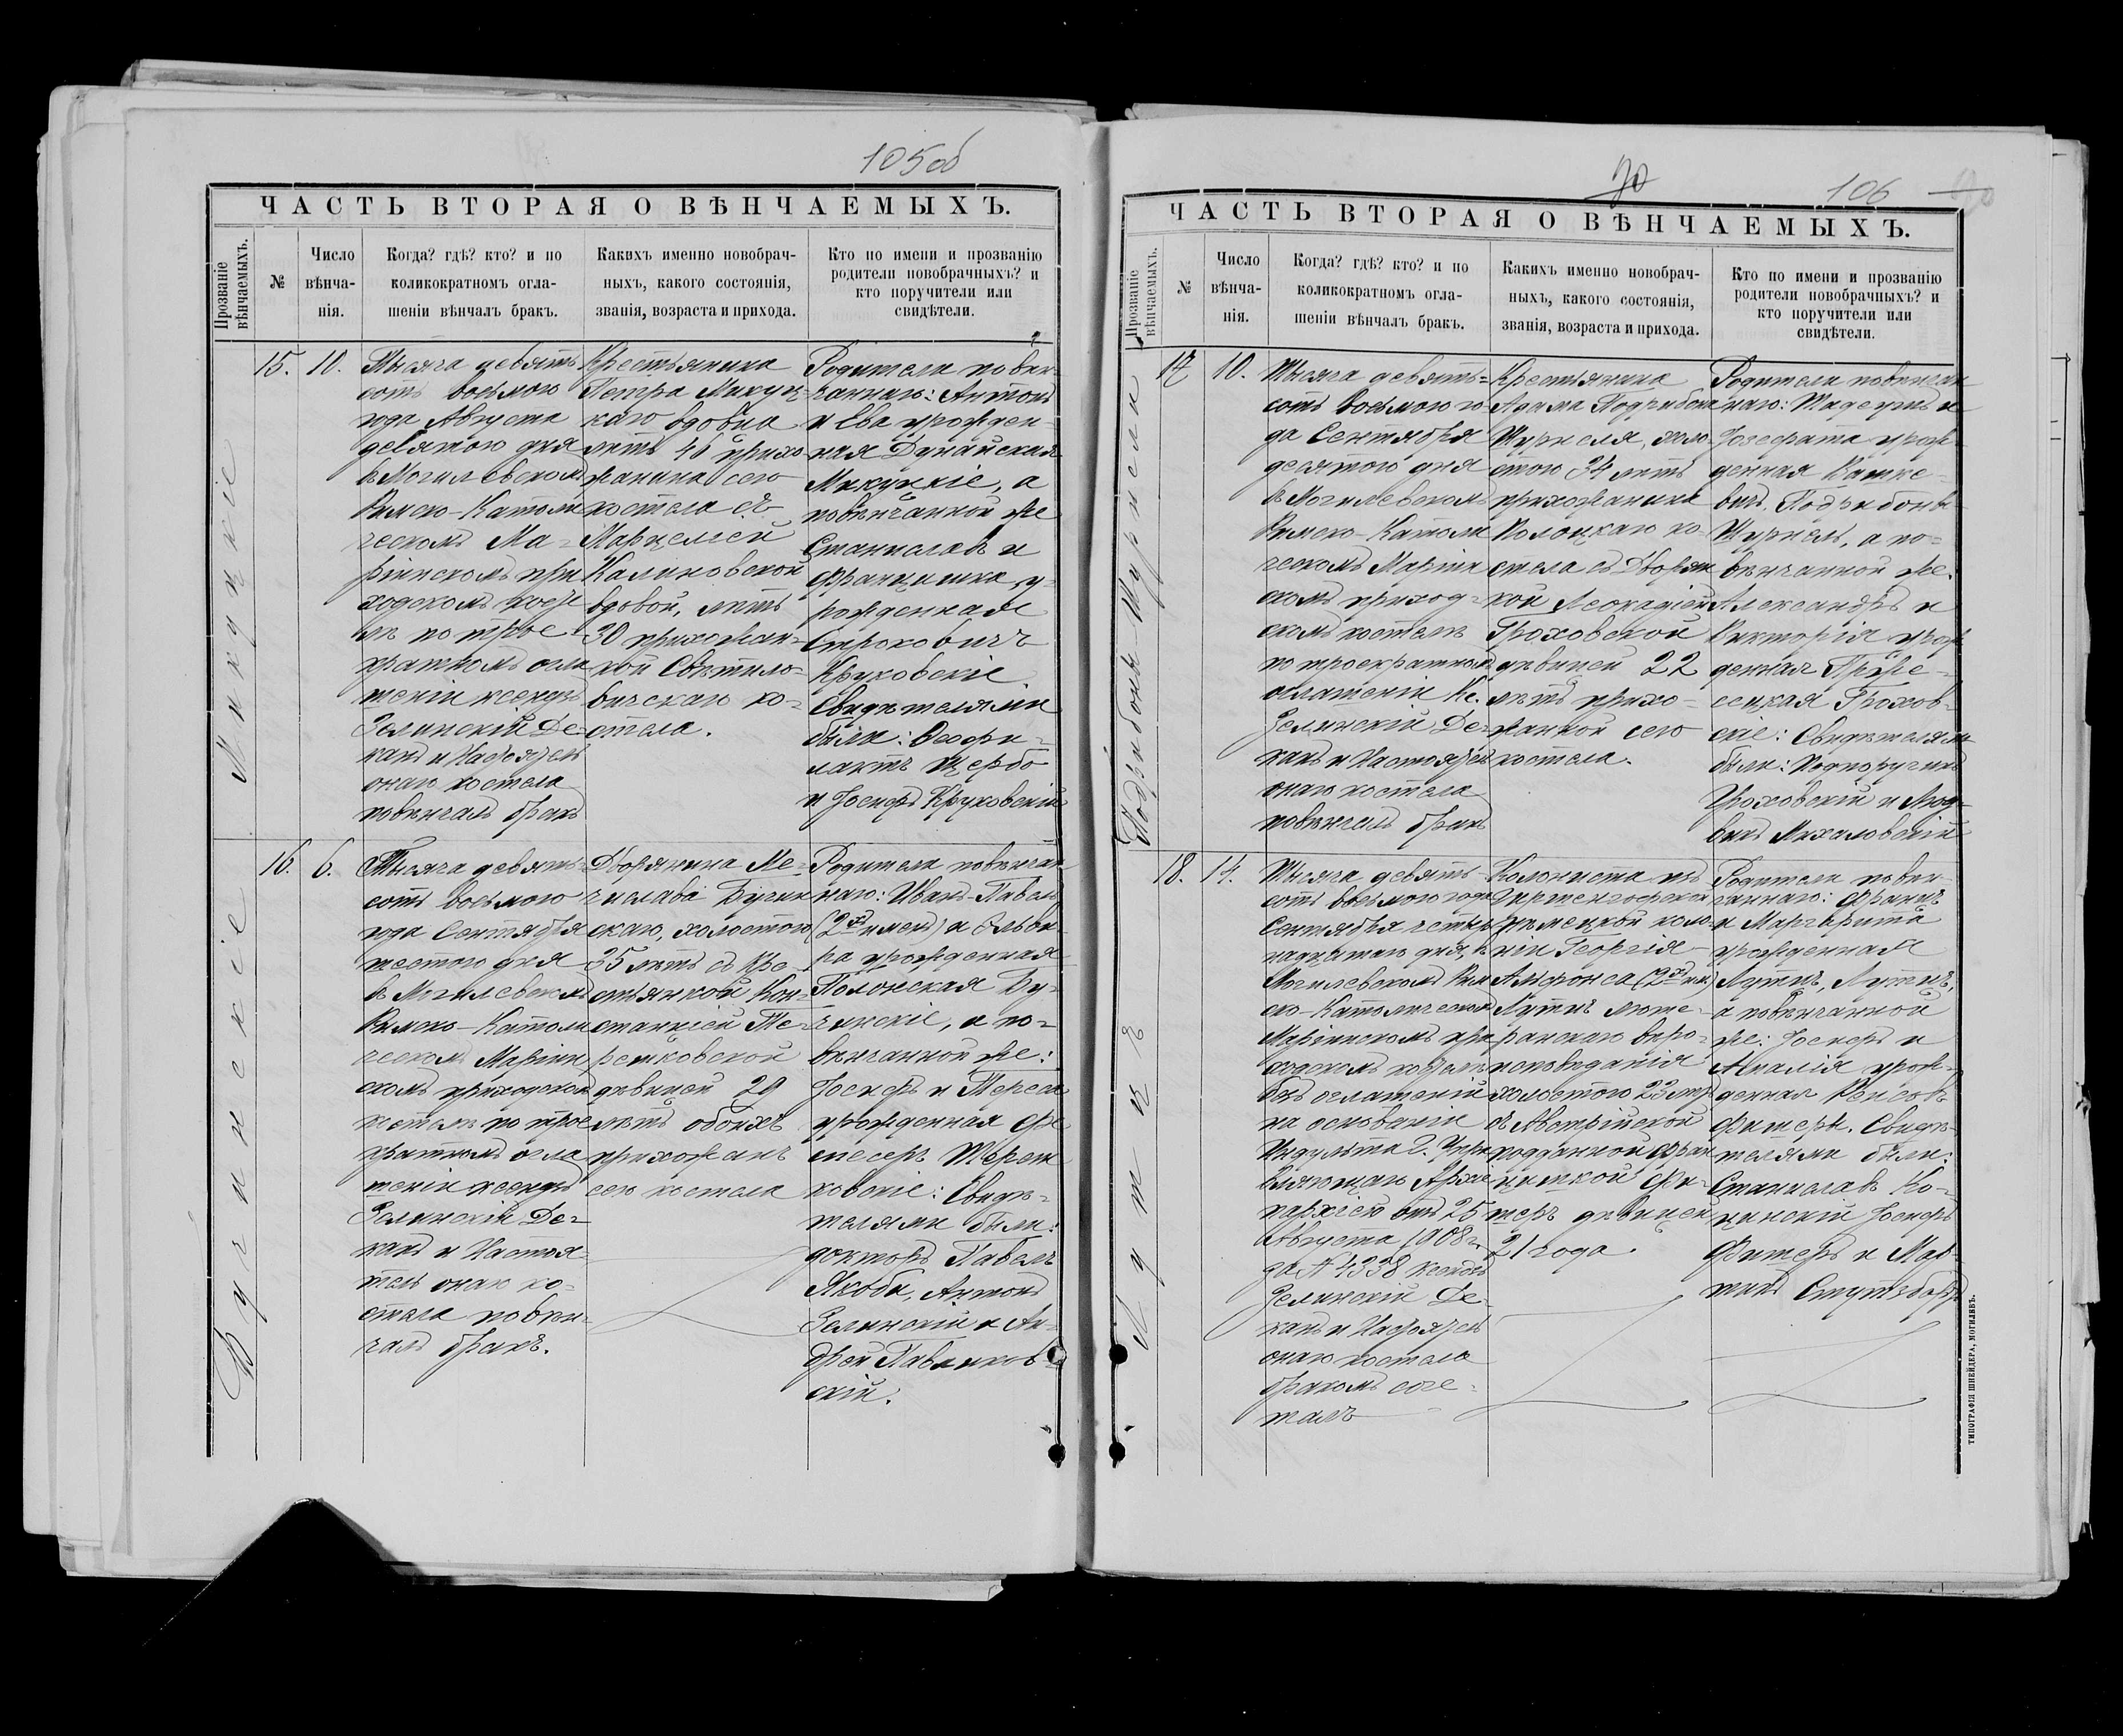 105 об
ЧАСТЬ ВТОРАЯ О ВѢНЧАЕМЫХЪ.
Прозваніе вѣнчаемыхъ.
№
Число вѣнча-
нія.
Когда? гдѣ? кто? и по
коликократномъ огла-
шеніи вѣнчалъ бракъ.
Какихъ именно новобрач-
ныхъ, какого состоянія,
званія, возраста и прихода.
Кто по имени и прозванію
родители новобрачныхъ? и
кто поручители или
свидѣтели.
Микуцкіе
15.
10.
Тысяча девять
сотъ восьмого
года Августа
десятого дня
въ Могилевскомъ
Римско-Католи
ческомъ Ма-
ріинскомъ при
ходскомъ косте
лѣ по трое-
кратномъ огла
шеніи ксендзъ
Зелинскій Де-
канъ и Настоятель
онаго костела
повѣнчалъ бракъ
Крестьянина
Петра Микуц-
каго вдовца
лѣтъ 46 прихо
жанина сего
костела съ
Марцелей
Калиновской
вдовой, лѣтъ
30 прихожан-
кой Свѣтило-
вичскаго ко-
стела.
Родители повѣн-
чаннаго: Антонъ
и Ева урожден-
ная Дунайская
Микуцкіе, а
повѣнчанной же
Станиславъ и
Францишка у-
рожденная
Строковичъ
Круковскіе
Свидѣтелями
были: Феофи-
лактъ Щербо
и Іосифъ Круковскій
Бучинскіе
16.
6.
Тысяча девять-
сотъ восьмого
года Сентября
шестого дня
въ Могилевскомъ
Римско-Католи
ческомъ Маріин
скомъ приходскомъ
костелѣ по трое
кратномъ огла
шеніи ксендзъ
Зелинскій Де-
канъ и Настоя-
тель онаго ко-
стела повѣн-
чалъ бракъ.
Дворянина Ме-
числава Бучин
скаго, холостого
35 лѣтъ съ Кре-
стьянкой Кон-
станціей Те-
решковской
дѣвицей 29
лѣтъ обоихъ
прихожанъ
сего костела
Родители повѣнчан
наго: Иванъ-Павелъ
(2хъ именъ) и Эльви-
ра урожденная
Полонская Бу-
чинскіе, а по-
вѣнчанной же:
Іосифъ и Тереса
урожденная
Тереш
ковскіе: Свидѣ-
телями были:
докторъ Павелъ
Якоби, Антонъ
Зелинскій и Ан-
дрей Павликов-
скій.
70
106
ЧАСТЬ ВТОРАЯ О ВѢНЧАЕМЫХЪ.
Прозваніе вѣнчаемыхъ.
№
Число вѣнча-
нія.
Когда? гдѣ? кто? и по
коликократномъ огла-
шеніи вѣнчалъ бракъ.
Какихъ именно новобрач-
ныхъ, какого состоянія,
званія, возраста и прихода.
Кто по имени и прозванію
родители новобрачныхъ? и
кто поручители или
свидѣтели.
17
10.
Тысяча девять-
сотъ восьмого го-
да Сентября
десятого дня
въ Могилевскомъ
Римско-Католи
ческомъ Маріин
скомъ приход-
скомъ костелѣ
по троекратномъ
оглашеніи Кс.
Зелинскій Де-
канъ и Настоятель
онаго костела
повѣнчалъ бракъ
Крестьянина
Адама
холо-
стого 34 лѣтъ
прихожанина
Полоцкаго ко-
стела съ Дворян
кой Леокадіей
Гроховской
дѣвицей 22
лѣтъ прихо-
жанкой сего
костела.
Родители повѣнчан
наго: Тадеушъ и
Іозефата урож-
денная Вашке-
вичъ,
а по-
вѣнчанной же:
Александръ и
Викторія урож
денная
Грохов-
скіе: Свидѣтелями
были: Подпоручикъ
Гроховскій и Люд-
викъ Михаловскій
Лутцъ
18.
14.
Тысяча девять-
сотъ восьмого года
Сентября четыр
надцатого дня, въ
Могилевскомъ Рим
ско-Католическомъ
Маріинскомъ при
ходскомъ костелѣ
безъ оглашеній
на основаніи
Индульта г. Упра
вляющаго Архіе
пархіею отъ 25
Августа 1908 г.
за № 4338 ксендзъ
Зелинскій Де-
канъ и Настоятель
онаго костела
бракомъ соче-
талъ
Колониста изъ
нѣмецкой коло-
ніи Георгія-
Альфонса (2хъ им.)
Лутцъ люте-
ранскаго вѣро-
исповѣданія
холостого 23 лѣтъ
съ Австрійской
подданной Фран
цишкой Фи-
шеръ дѣвицей
21 года.
Родители повѣн-
чаннаго: Францъ
и Маргарита
урожденная
Лутцъ, Лутцъ,
а повѣнчанной
же: Іосифъ и
Амалія урож-
денная
Фишеръ. Свидѣ-
телями были:
Станиславъ Ко-
цинскій Іосифъ
Фишеръ и Мар-
тинъ
ТИПОГРАФІЯ ШНЕЙДЕРА, МОГИЛЕВЪ.